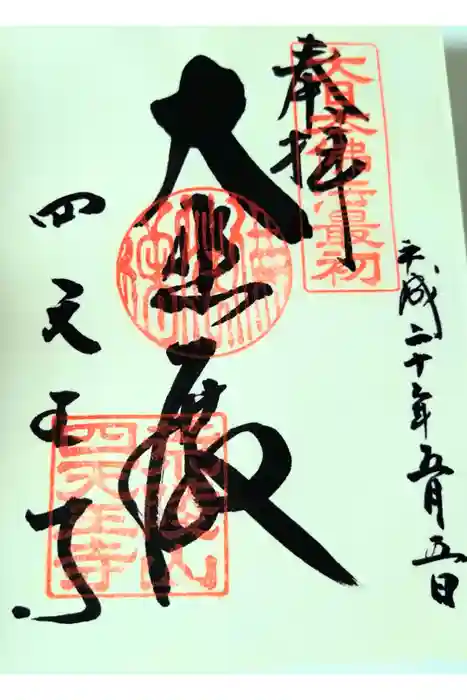 平成二十年五月五日
奉拝
大日本佛法最初
大悲殿
四天王寺
荒陵山
四天王寺